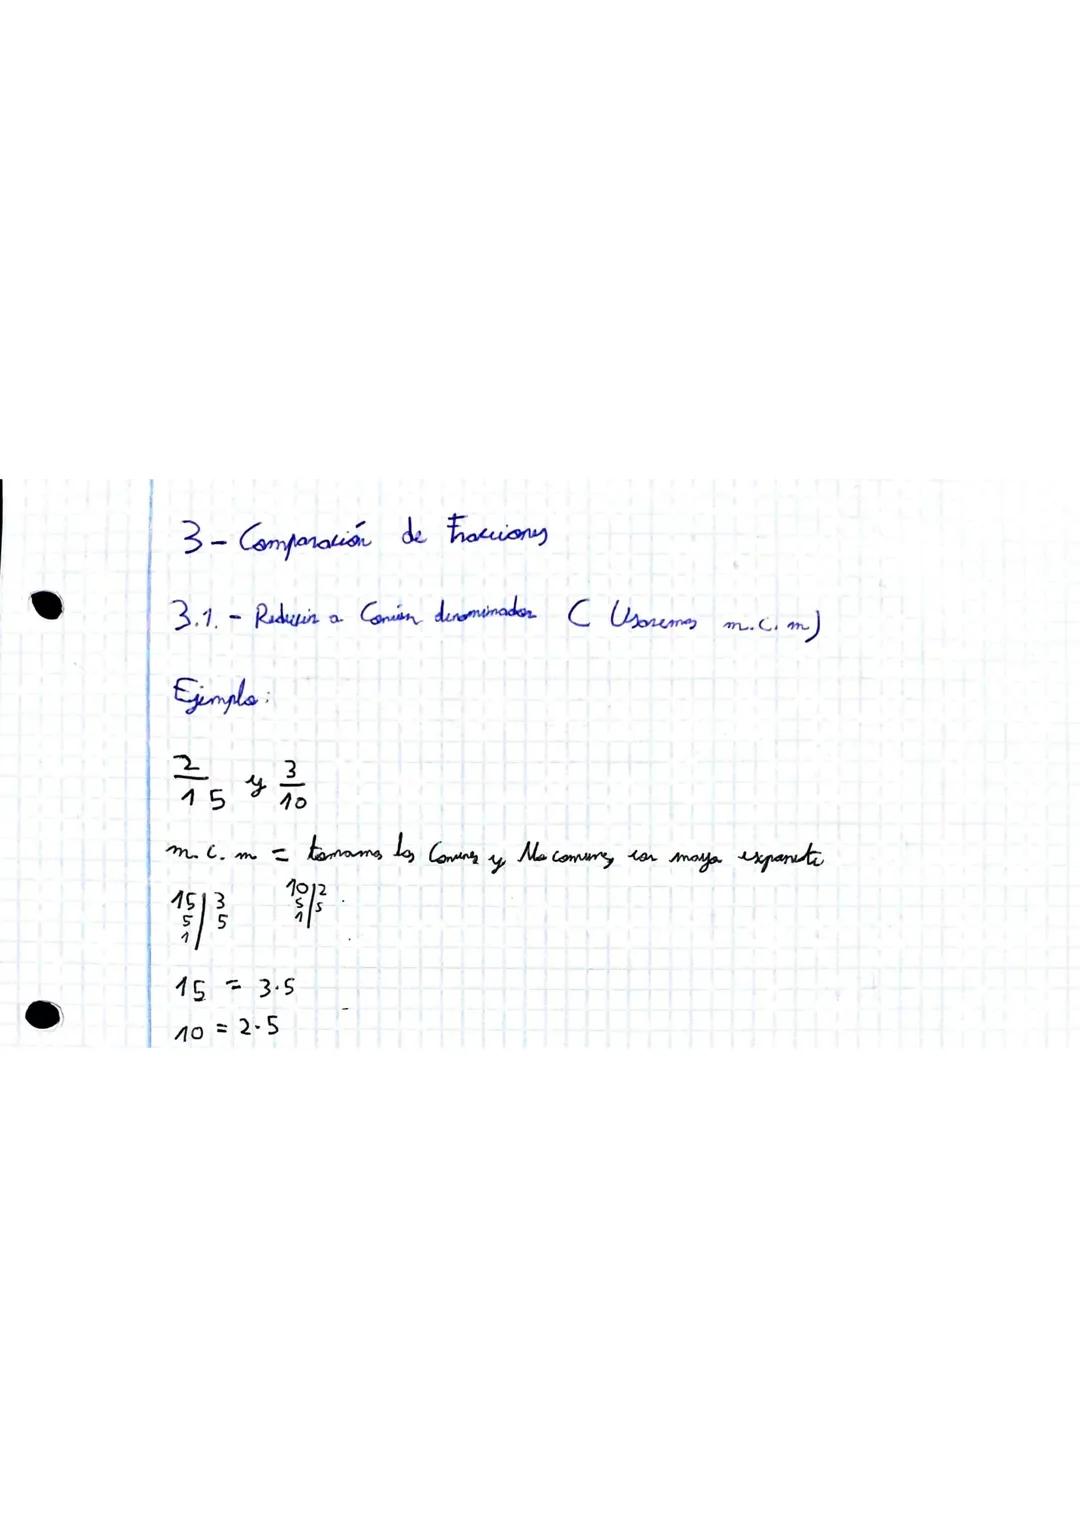 3- Comparación de Fracciones
3.1. - Reducir a Común denominador ( Usaremos m.c.m)
Ejemplo:
2/15 y 3/10
m.c.m = tomamos los Comunes y No comunes con mayor exponente
15|3 10|2
5|5 5|5
1| 1|
15 = 3·5
10 = 2·5